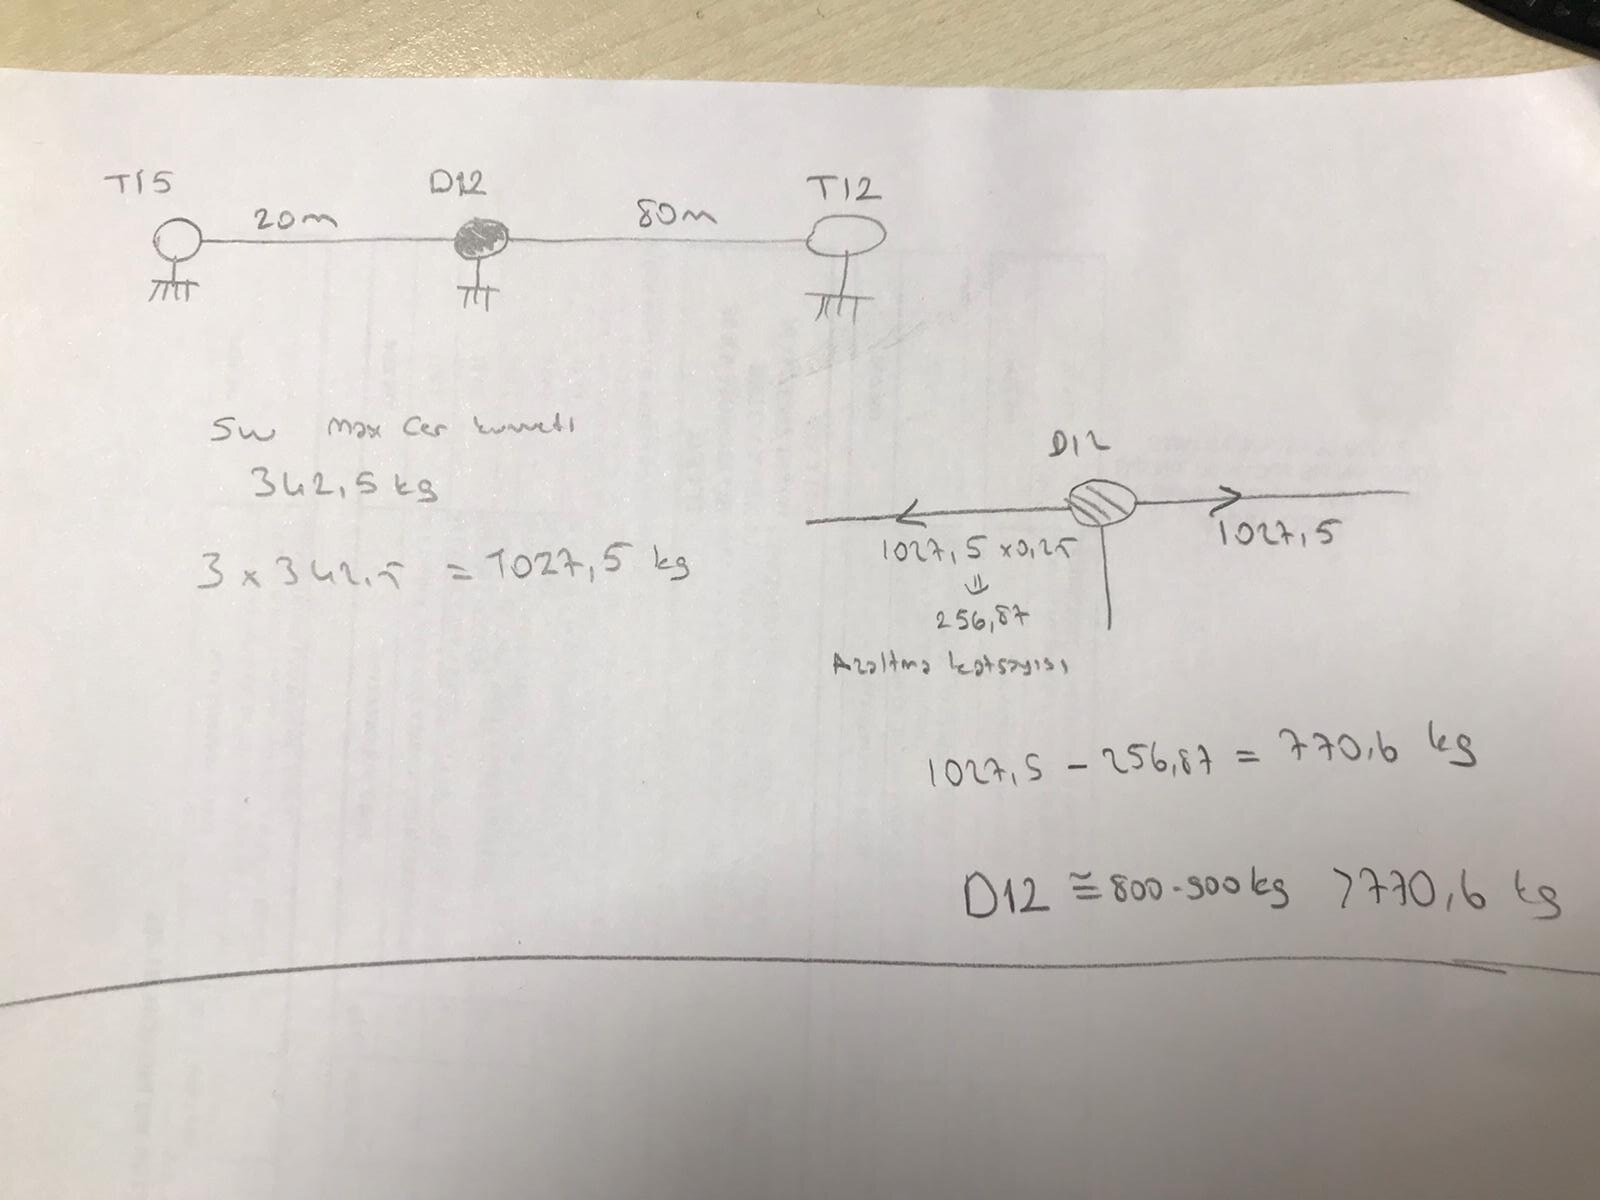 T15 D12 T12
20m 80m
SW max cer kuvveti
342,5 kg
3 x 342,5 = 1027,5 kg
D12
1027,5 x0,25 1027,5
⇓
256,87
Azaltma katsayısı
1027,5 - 256,87 = 770,6 kg
D12 ≅ 800-900kg >770,6 kg